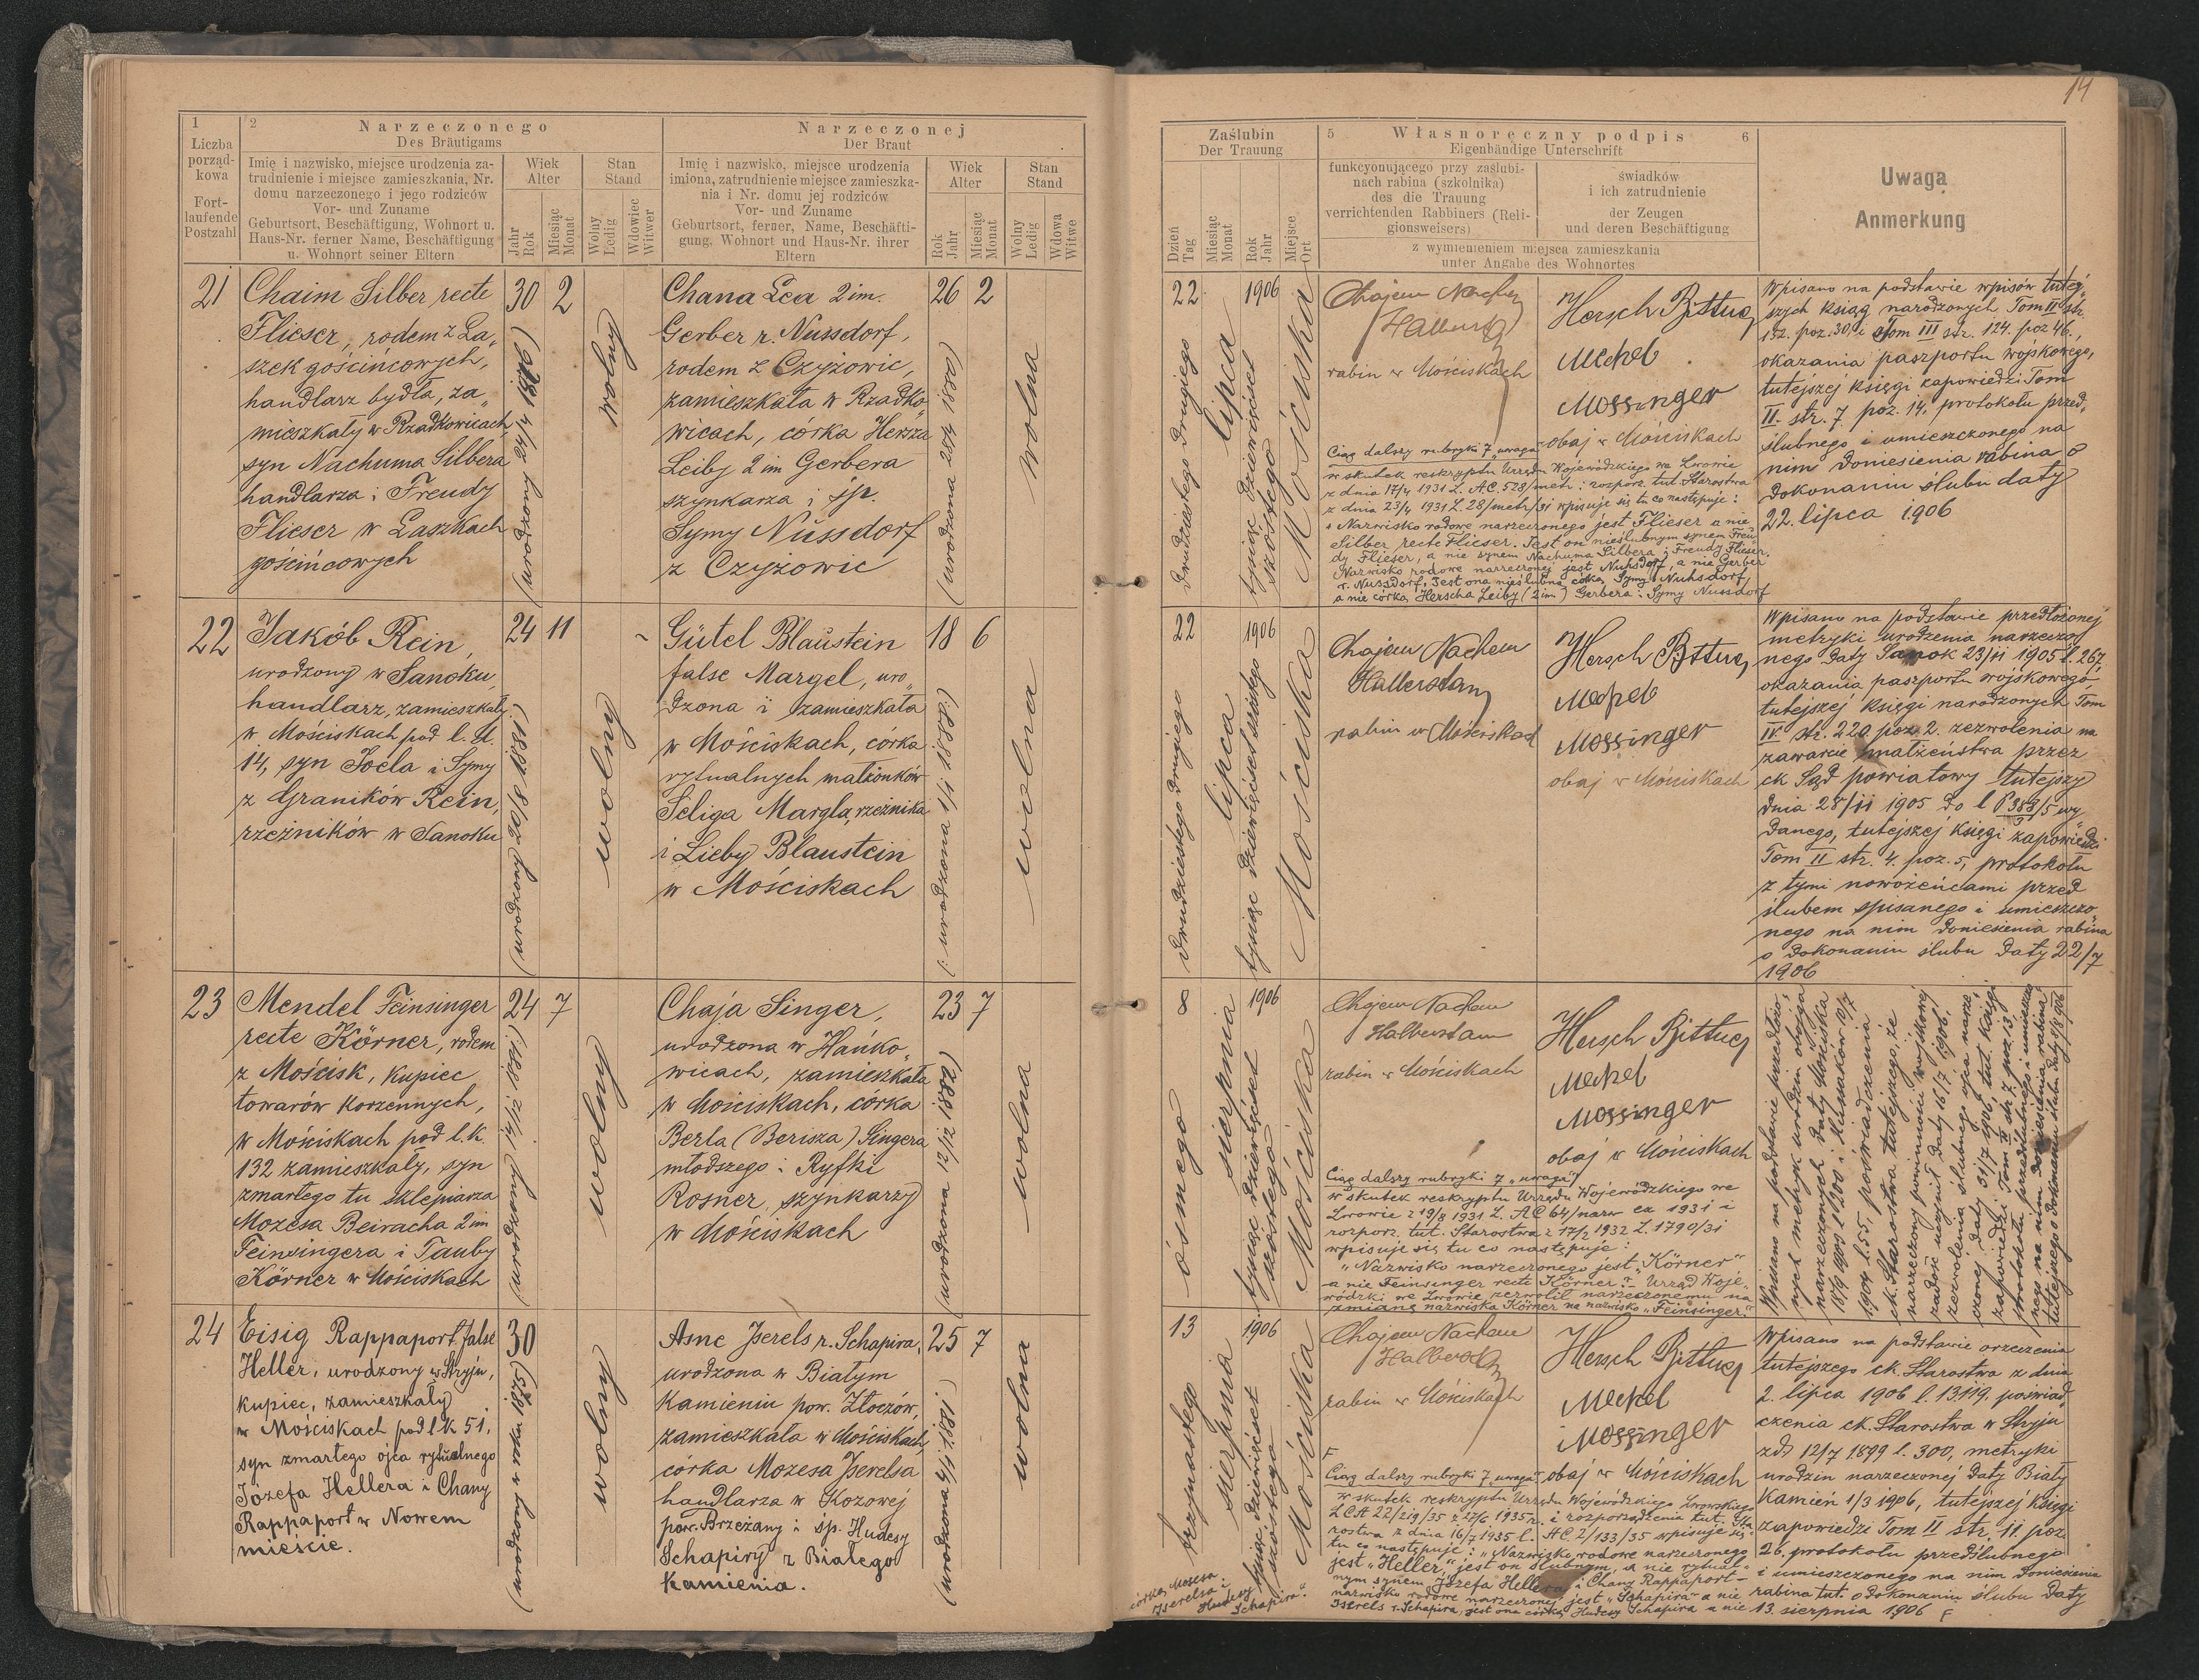 14
1
Liczba
porząd-
kowa
Fort-
laufende
Postzahl
2
Narzeczonego
Des Bräutigams
Imię i nazwisko, miejsce urodzenia za-
trudnienie i miejsce zamieszkania, Nr.
domu narzeczonego i jego rodziców
Vor- und Zuname
Geburtsort, Beschäftigung, Wohnort u.
Haus-Nr. ferner Name, Beschäftigung
u. Wohnort seiner Eltern
Wiek
Alter
Jahr
Rok
Miesiąc
Monat
Stan
Stand
Wolny
Ledig
Wdowiec
Witwer
Narzeczonej
Der Braut
Imię i nazwisko, miejsce urodzenia
imiona, zatrudnienie miejsce zamieszka-
nia i Nr. domu jej rodziców
Vor- und Zuname
Geburtsort, ferner, Name, Beschäfti-
gung, Wohnort und Haus-Nr. ihrer
Eltern
Wiek
Alter
Rok
Jahr
Miesiąc
Monat
Stan
Stand
Wolny
Ledig
Wdowa
Witwe
Zaślubin
Der Trauung
Dzień
Tag
Miesiąc
Monat
Rok
Jahr
Miejsce
Ort
5 Własnoręczny podpis 6
Eigenbändige Unterschrift
funkcyonującego przy zaślubi-
nach rabina (szkolnika)
des die Trauung
verrichtenden Rabbiners (Reli-
gionsweisers)
świadków
i ich zatrudnienie
der Zeugen
und deren Beschäftigung
z wymienieniem miejsca zamieszkania
unter Angabe des Wohnortes
Uwaga
Anmerkung
21
Chaim Silber recte
Flieser, rodem z La„
szek gościńcowych,
handlarz bydła, za„
mieszkały w Rządkowicach
syn Nachuma Silbera
handlarza i Freudy
Flieser w Laszkach
gościńcowych
30 2
(urodzony 24/4 1876)
wolny
Chana Lea 2 im.
Gerber r. Nussdorf,
rodem z Czyżowic,
zamieszkała w Rządko„
wicach, córka Hersza
Leiby 2 im Gerbera
szynkarza i śp.
Symy Nussdorf
z Czyżowic
26 2
(urodzona 20/4 1880)
wolna
22
dwudziestego drugiego
lipca
1906
tysiąc dziewięćset
szóstego
Mościska
Chajem Nachem
Halberstam
rabin w Mościskach
Hersch Bittner
Mechel
Mossinger
obaj w Mościskach
Ciąg dalszy rubryki 7 „uwaga“
w skutek reskryptu Urzędu Wojewódzkiego we Lwowie
z dnia 17/4 1931 L. A.C. 528/metr i rozporz. tut. Starostwa
z dnia 23/4 1931 L. 28/metr/31 wpisuje się tu co następuje:
„Nazwisko rodowe narzeczonego jest Flieser a nie
Silber recte Flieser. Jest on nieślubnym synem Freu
dy Flieser, a nie synem Nachuma Silbera i Freudy Flieser.
Nazwisko rodowe narzeczonej jest Nuhsdorf, a nie Gerber
r. Nussdorf. Jest ona nieślubną córką Symy Nuhsdorf,
a nie córką Herscha Leiby (2 im) Gerbera i Symy Nussdorf
Wpisano na podstawie wpisów tutej„
szych ksiąg narodzonych Tom II str.
192. poz. 30, i Tom III str. 124. poz 46,
okazania paszportu wojskowego,
tutejszej księgi zapowiedzi Tom
II. str. 7 poz. 14, protokołu przed„
ślubnego i umieszczonego na
nim doniesienia rabina o
dokonaniu ślubu daty
22. lipca 1906
22
Jakób Rein,
urodzony w Sanoku,
handlarz, zamieszkały
w Mościskach pod l. d.
14, syn Joela i Symy
z Graników Rein,
rzeźników w Sanoku
24 11
(urodzony 20/8 1881)
wolny
Gütel Blaustein
false Margel, uro„
dzona i zamieszkała
w Mościskach, córka
rytualnych małżonków
Seliga Margla, rzeźnika
i Lieby Blaustein
w Mościskach
18 6
(: urodzona 1/1 1888:)
wolna
22
dwudziestego drugiego
lipca
1906
tysiąc dziewięćset szóstego
Mościska
Chajem Nachem
Halberstam
rabin w Mościskach
Hersch Bittner
Mechel
Mossinger
obaj w Mościskach
Wpisano na podstawie przedłożonej
metryki urodzenia narzeczo„
nego daty Sanok 23/11 1905 l. 267,
okazania paszportu wojskowego
tutejszej księgi narodzonych Tom
IV str. 220 poz 2. zezwolenia na
zawarcie małżeństwa przez
ck Sąd powiatowy tutejszy
dnia 28/11 1905 do l. wy„
danego, tutejszej księgi zapowiedzi
Tom II str. 4. poz. 5, protokołu
z tymi nowożeńcami przed
ślubem spisanego i umieszczo„
nego na nim doniesienia rabina
o dokonaniu ślubu daty 22/7
1906
23
Mendel Feinsinger
recte Körner, rodem
z Mościsk, kupiec
towarów korzennych,
w Mościskach pod l. k.
132 zamieszkały, syn
zmarłego tu sklepiarza
Mozesa Beiracha 2 im
Feinsingera i Tauby
Körner w Mościskach
24 7
(urodzony 14/12 1881:)
wolny
Chaja Singer,
urodzona w Hańko„
wicach, zamieszkała
w Mościskach, córka
Berla (Berisza) Singera
młodszego i Ryfki
Rosner, szynkarzy
w Mościskach
23 7
(urodzona 12/12 1882)
wolna
8
ósmego
sierpnia
1906
tysiąc dziewięćset
szóstego
Mościska
Chajem Nachem
Halberstam
rabin w Mościskach
Hersch Bittner
Mechel
Mossinger
obaj w Mościskach
Ciąg dalszy rubryki 7 „uwaga“
w skutek reskryptu Urzędu Wojewódzkiego we
Lwowie z 19/8 1931 L. AC 64/narw ex 1931 i
rozporz. tut. Starostwa z 17/2 1932 L. 1790/31
wpisuje się tu co następuje:
„Nazwisko narzeczonego jest „Körner“
a nie Feinsinger recte Körner.“ – Urząd Woje„
wódzki we Lwowie zezwolił narzeczonemu na
zmianę nazwiska Körner na nazwisko „Feinsinger.“
Wpisano na podstawie przedłożo„
nych metryk urodzin obojga
narzeczonych daty Mościska
18/9 1905 l. 200 i Hussaków 10/7
1904 l. 55, poświadczenia
ck. Starostwa tutejszego, że
narzeczony powinności wojskowej
zadość uczynił daty 16/7 1906,
zezwolenia ślubnego ojca narze„
czonej daty 31/7 1906, tut. księgi
zapowiedzi Tom II str. 7 poz. 13,
protokołu przedślubnego i umieszczo„
nego na nim doniesienia rabina
tutejszego o dokonaniu ślubu daty 8/8 906
24
Eisig Rappaport false
Heller, urodzony w Stryju,
kupiec, zamieszkały
w Mościskach pod lk 51,
syn zmarłego ojca rytualnego
Józefa Hellera i Chany
Rappaport w Nowem
mieście.
30
(urodzony w roku 1875)
wolny
Asne Iserels r. Schapira,
urodzona w Białym
Kamieniu pow. Złoczów,
zamieszkała w Mościskach,
córka Mozesa Iserelsa
handlarza w Kozowej
pow. Brzeżany i śp. Hudesy
Schapiry z Białego
Kamienia.
25 7
(urodzona 4/1 1881)
wolna
13
trzynastego
sierpnia
1906
tysiąc dziewięćset
szóstego
Mościska
Chajem Nachem
Halberstam
rabin w Mościskach
Hersch Bittner
Mechel
Mossinger
obaj w Mościskach
F
Ciąg dalszy rubryki 7 „uwaga“
w skutek reskryptu Urzędu Wojewódzkiego Lwowskiego
L CA 22/219/35 z 27/6 1935 r. i rozporządzenia tut. Sta
rostwa z dnia 16/7 1935 l. AC 2/133/35 wpisuje się
tu co następuje: „Nazwisko rodowe narzeczonego
jest „Heller“, jest on ślubnym, a nie rytual-
nym synem Józefa Hellera i Chany Rappaport –
nazwisko rodowe narzeczonej jest „Schapira“ a nie
Iserels r. Schapira, jest ona córką Hudesy Schapira a nie
córką Mosesa
Iserelsa i
Hudesy
Schapira“.
Wpisano na podstawie orzeczenia
tutejszego ck. Starostwa z dnia
2. lipca 1906 l. 13119. poświad„
czenia ck. Starostwa w Stryju
z d. 12/7 1899 l. 300, metryki
urodzin narzeczonej daty Biały
Kamień 1/3 1906, tutejszej księgi
zapowiedzi Tom II str. 11. poz
26. protokołu przedślubnego
i umieszczonego na nim doniesienia
rabina tut. o dokonaniu ślubu daty
13. sierpnia 1906 F